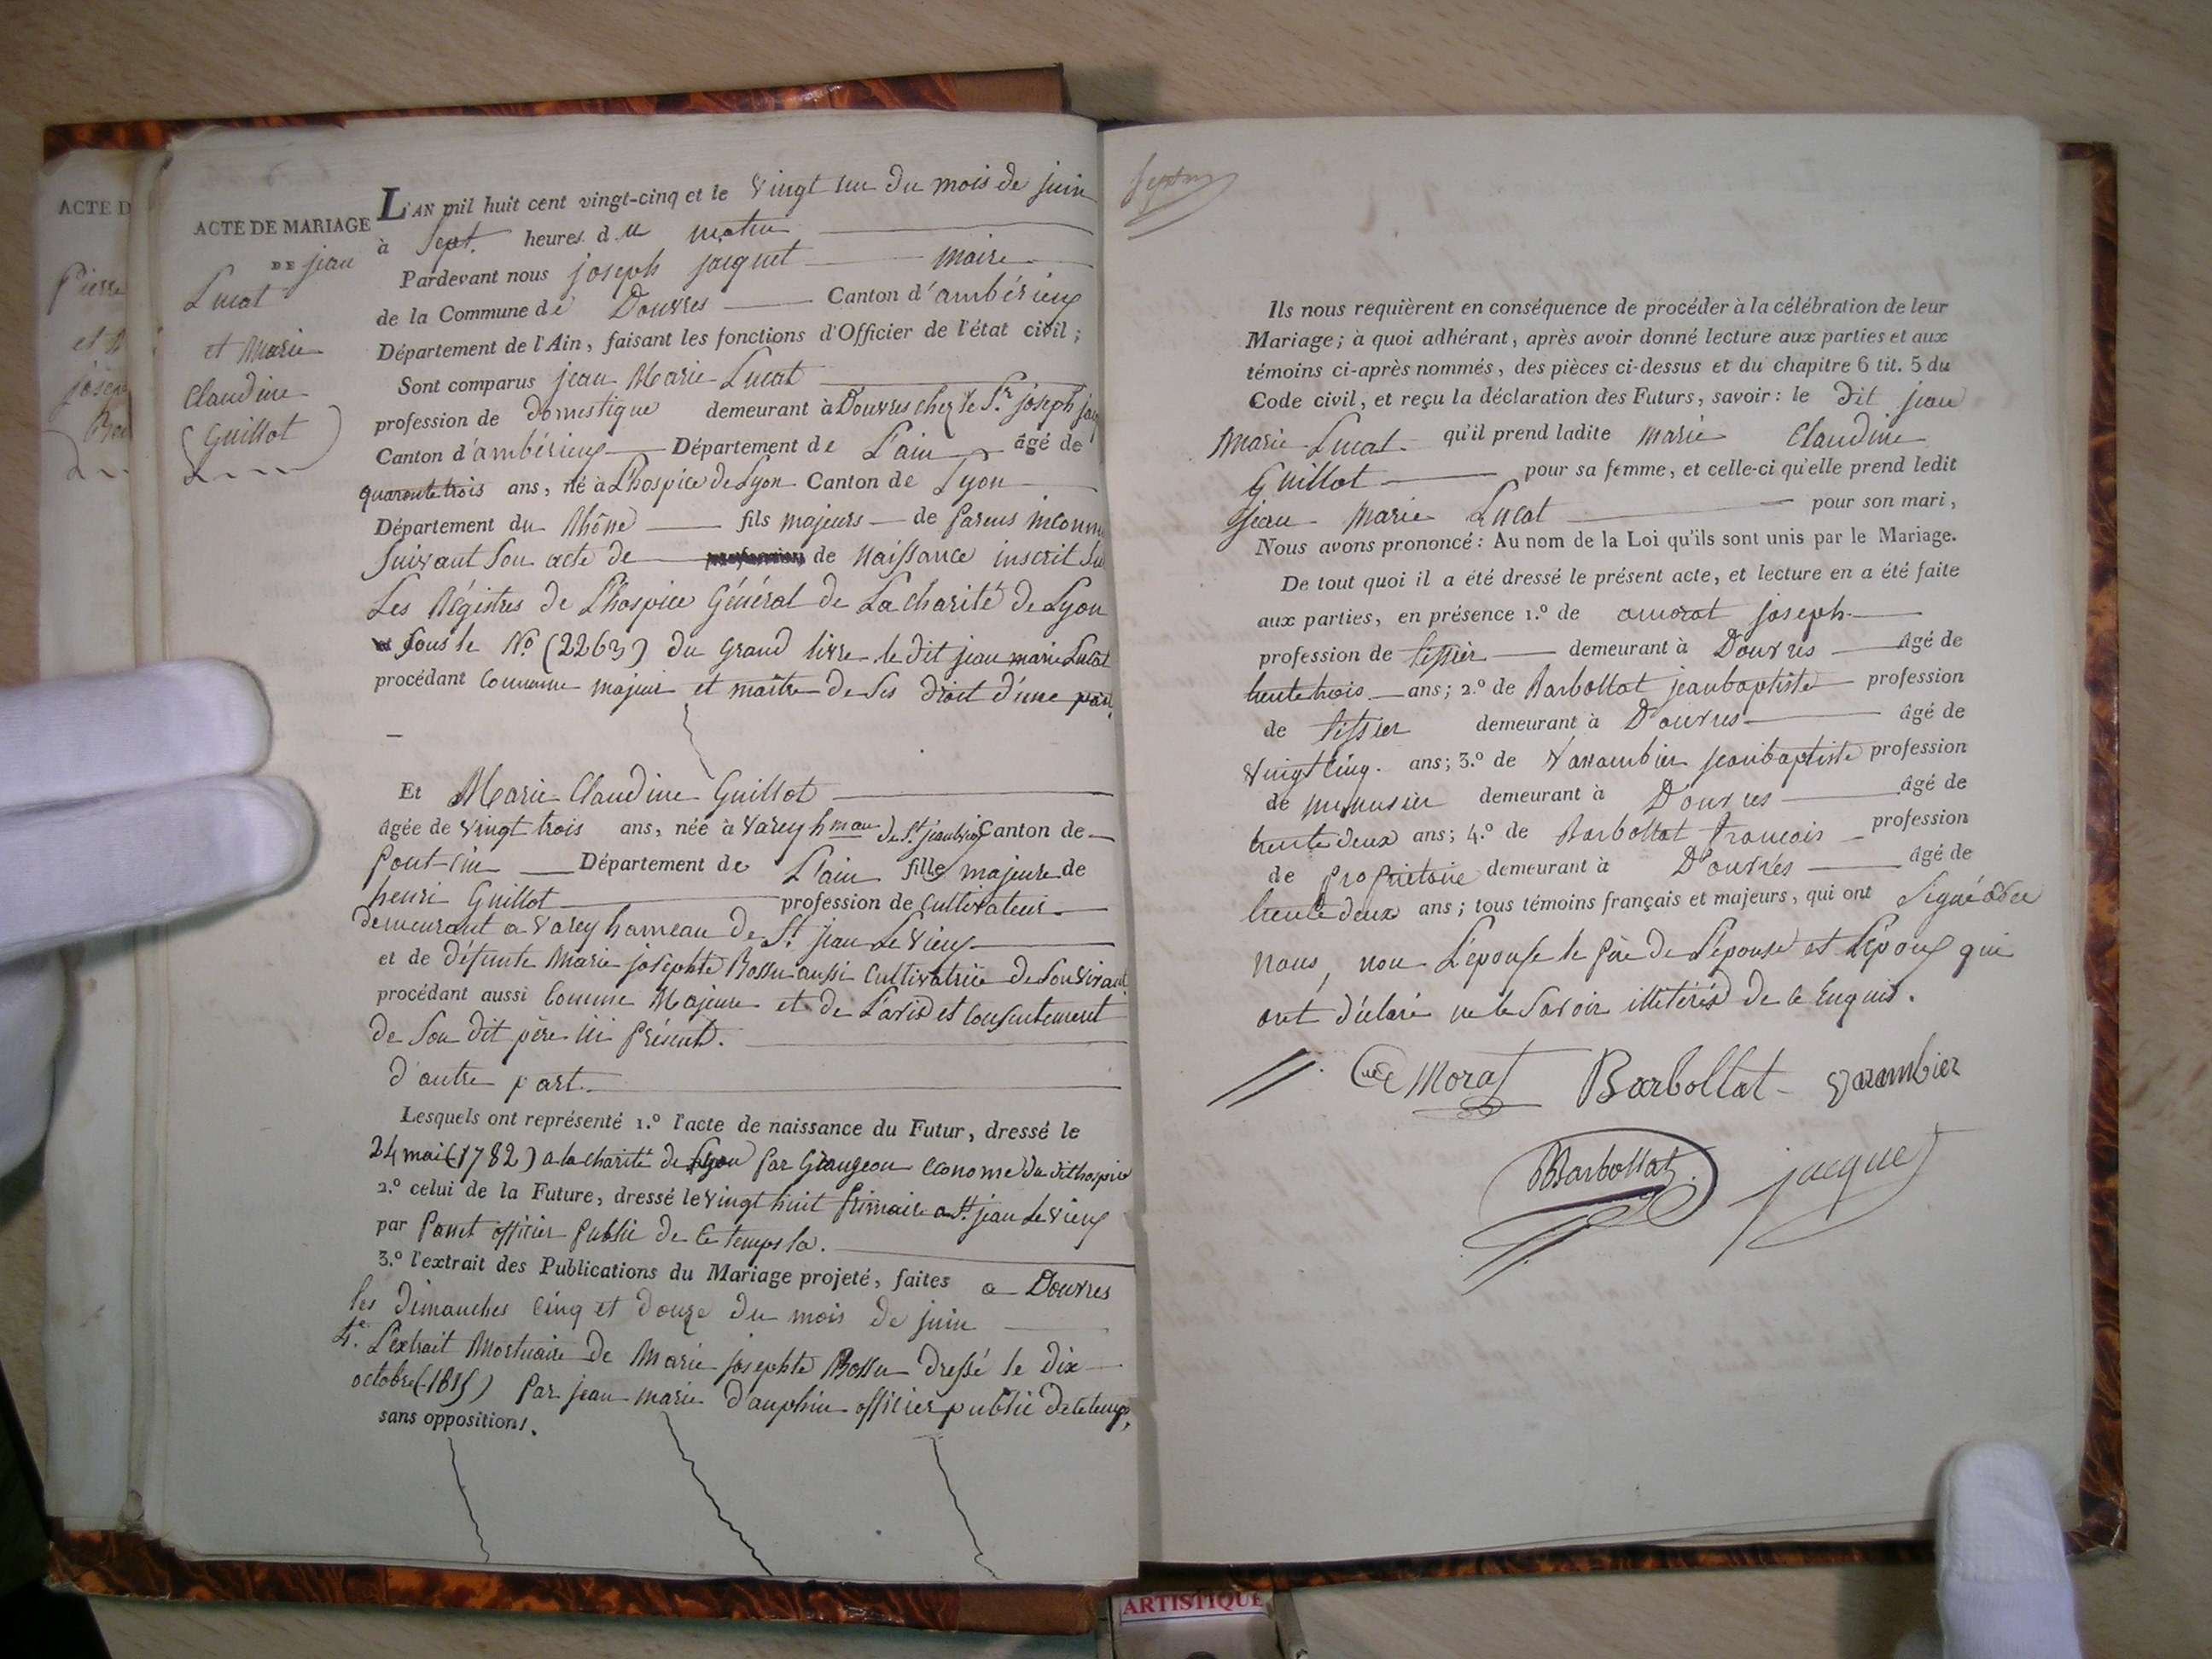 ACTE D
Pierre
ACTE DE MARIAGE
DE jean
Lucat
et Marie
Claudine
Guillot
L'AN mil huit cent vingt-cinq et le vingt un du mois de juin
à Sept heures du matin
Pardevant nous joseph jacquet maire
de la Commune de Douvres Canton d'ambérieux
Département de l'Ain, faisant les fonctions d'Officier de l'état civil;
Sont comparus jean Marie Lucat
profession de domestique demeurant à Douvres chez le Sr. joseph jacq
Canton d'ambérieux Département de L'ain âgé de
quarante trois ans, né à L'hospice de Lyon Canton de Lyon
Département du Rhône fils majeurs de parens inconnu
Suivant Son acte de de Naissance inscrit Su
Les Régistres de L'hospice Général de La charité de Lyon
Sous le No (2263) du grand livre le dit jean marie Lucat
procédant Comme majeur et maître de Ses droit d'une part,
Et Marie Claudine Guillot
âgée de vingt trois ans, née à varey hmau de St jean le vieux Canton de
Pont-d'ain Département de L'ain fille majeure de
henri Guillot profession de cultivateur
demeurant a varey hameau de St. jean Le vieux
et de défunte Marie josephte Bossu aussi Cultivatrice de Son vivant
procédant aussi Comme Majeure et de L'avis et Consentement
de Son dit père ici présent.
d'autre part.
Lesquels ont représenté 1.º l'acte de naissance du Futur, dressé le
24 mai (1782) a la charité de Lyon par Grangeon économe du dit hospice
2.º celui de la Future, dressé le vingt huit frimaire a St. jean Le vieux
par Ponet officier public de Ce temps la.
3.º l'extrait des Publications du Mariage projeté, faites a Douvres
les dimanches Cinq et douze du mois de juin
4.e L'extrait Mortuaire de Marie josephte Bossu dressé le dix
octobre (1815) Par jean marie Dauphin officier public de ce temps,
sans oppositions.
Ils nous requièrent en conséquence de procéder à la célébration de leur
Mariage; à quoi adhérant, après avoir donné lecture aux parties et aux
témoins ci-après nommés, des pièces ci-dessus et du chapitre 6 tit. 5 du
Code civil, et reçu la déclaration des Futurs, savoir: le dit jean
Marie Lucat qu'il prend ladite Marie Claudine
Guillot pour sa femme, et celle-ci qu'elle prend ledit
Jean Marie Lucat pour son mari,
Nous avons prononcé: Au nom de la Loi qu'ils sont unis par le Mariage.
De tout quoi il a été dressé le présent acte, et lecture en a été faite
aux parties, en présence 1.º de amorat joseph
profession de tissier demeurant à Douvres âgé de
trente trois ans; 2.º de Barbollat jeanbaptiste profession
de tissier demeurant à Douvres âgé de
vingt Cinq. ans; 3.º de Varrambier jeanbaptiste profession
de menusier demeurant à Douvres âgé de
trente deux ans; 4.º de Barbollat francois profession
de propriétaire demeurant à Douvres âgé de
trente deux ans; tous témoins français et majeurs, qui ont Signé avec
nous, non L'épouse le père de L'épouse et L'époux qui
ont déclaré ne le Savoir illitérés de ce Enquis.
Morat Barbollat varambier
Barbollat jacquet
ARTISTIQUE